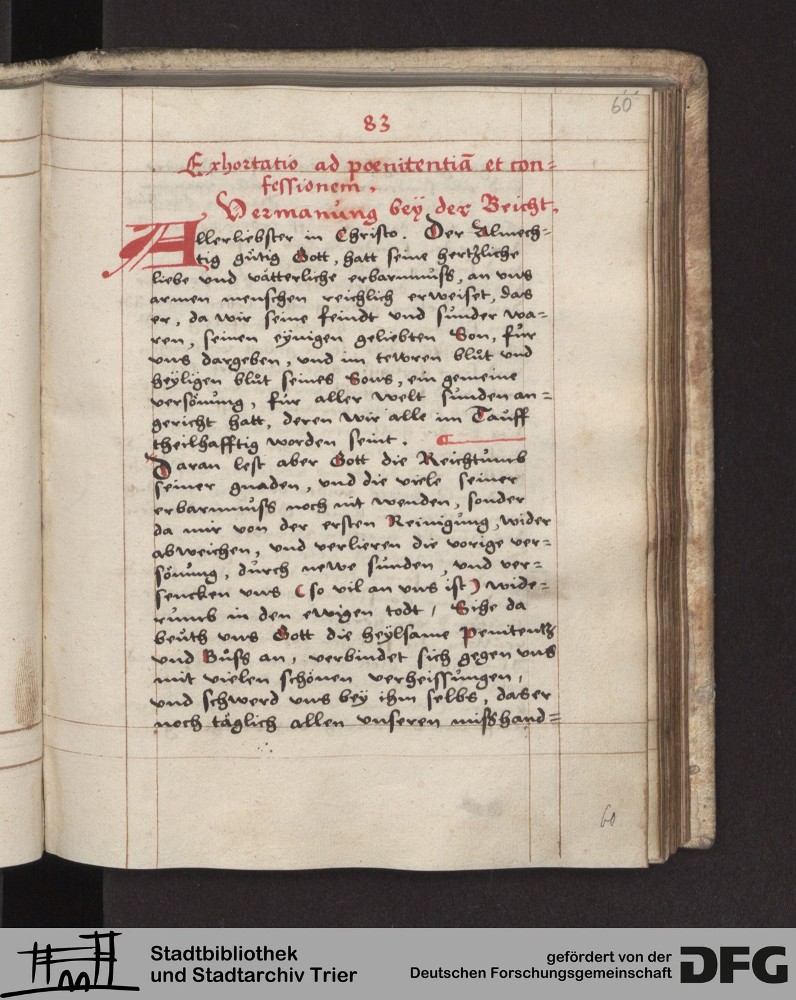 60
83
Exhortatio ad poenitentiā et con=
fessionem.
Vermanung beÿ der Beicht.
Allerliebster in Christo. Der Almech=
tig gütig Gott, hatt seine hertzliche
liebe vnd vätterliche erbarmnuß, an vns
armen menschen reichlich erweiset, das
er, da wir seine feindt vnd sunder wa=
ren, seinen eÿnigen geliebten Son, für
vns dargeben, vnd im tewren blůt vnd
heÿligen blůt seines Sons, ein gemeine
versönung, für aller welt sunden an=
gericht hatt, deren wir alle im Tauff
theilhafftig worden seint.
Daran lest aber Gott die Reichtumb
seiner gnaden, vnd die viele seiner
erbarmnuß noch nit wenden, sonder
da mir von der ersten Reinigung wider
abweichen, vnd verlieren die vorige ver=
sönung, durch newe sunden, vnd ver=
sencken vns (so vil an vns ist) wide=
rumb in den ewigen todt, Sihe da
beuth vns Gott die heÿlsame Penitentz
vnd Bůß an, verbindet sich gegen vns
mit vielen schönen verheissungen,
vnd schwerd vns beÿ ihm selbs, das er
noch täglich allen vnseren mißhand=
60
Stadtbibliothek
und Stadtarchiv Trier
gefördert von der
Deutschen Forschungsgemeinschaft
DFG